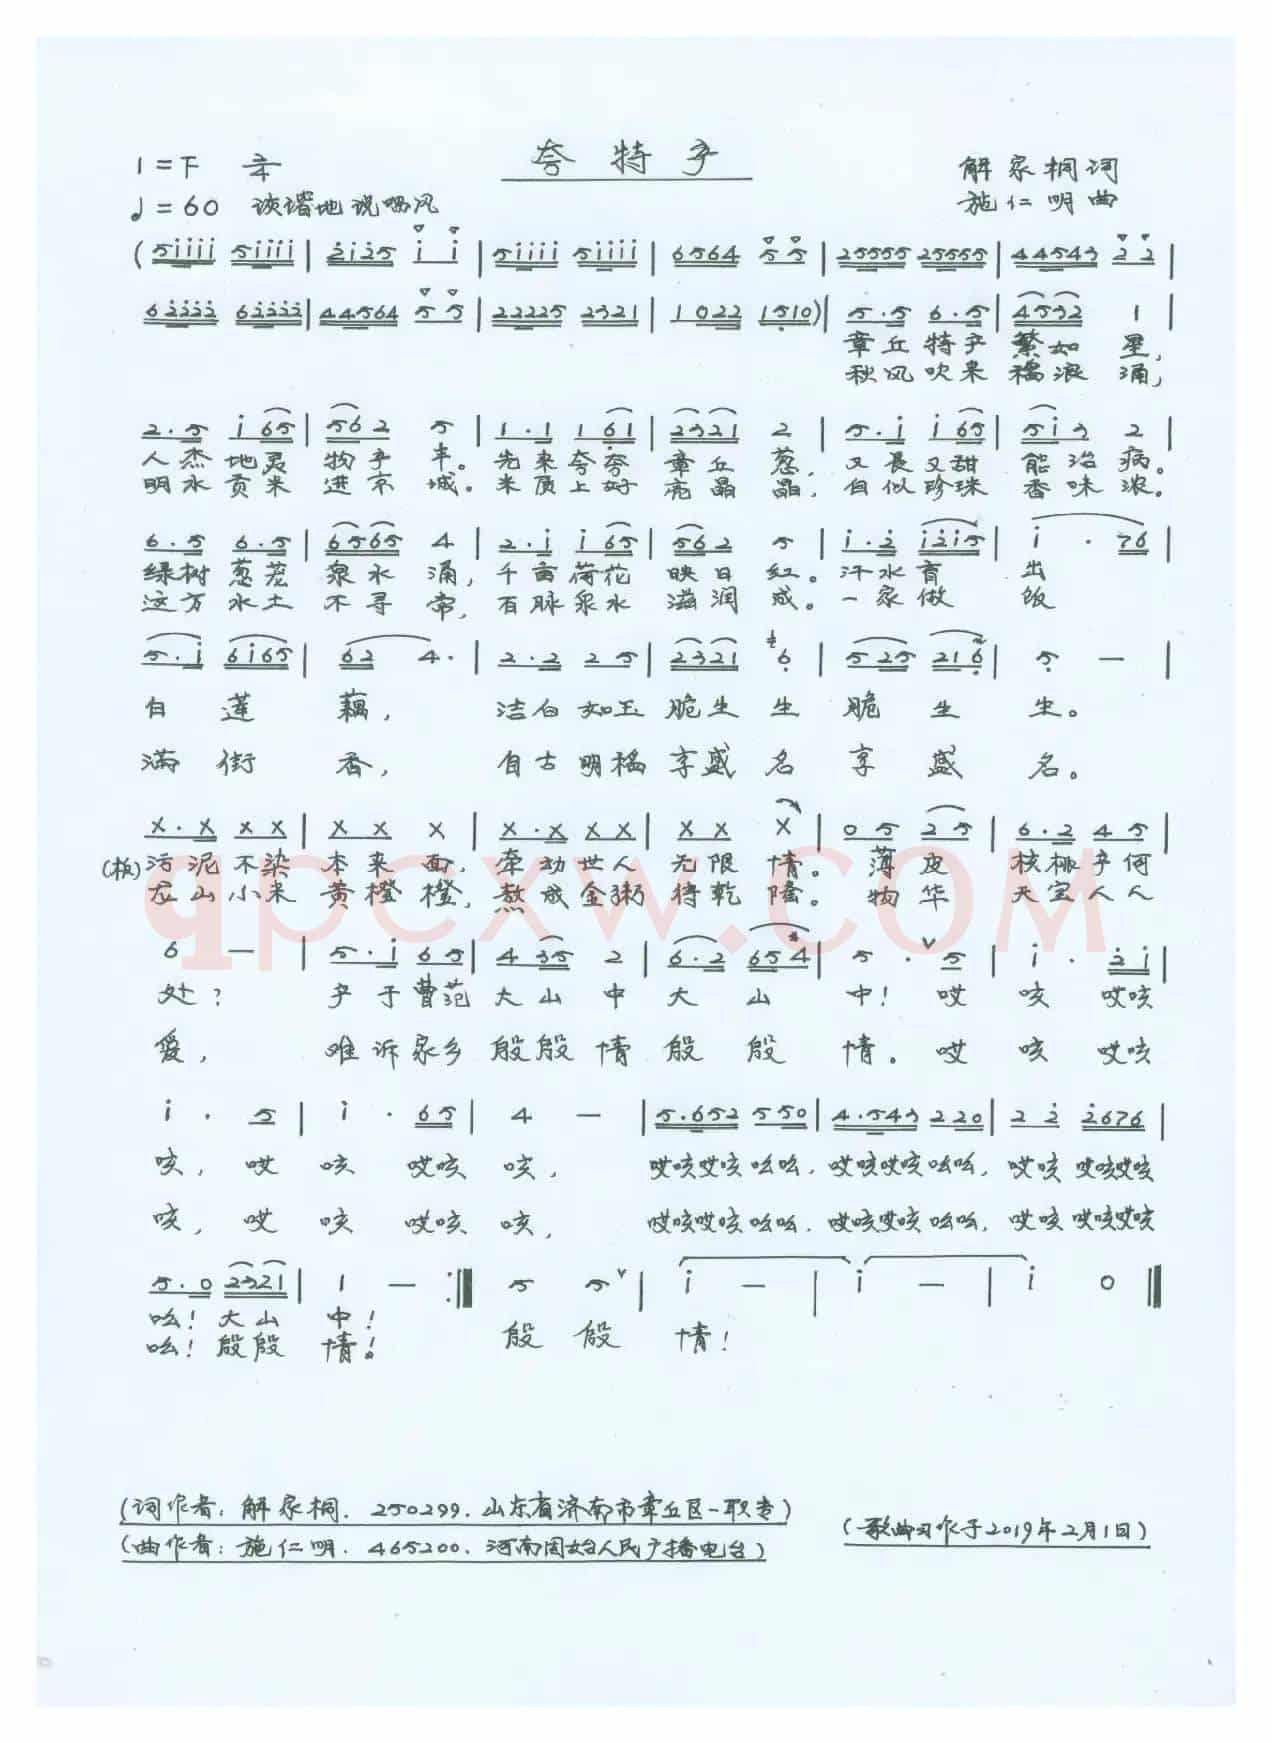 夸特产
1=F 2/4
解家桐词
♩=60 诙谐地说唱风
施仁明曲
(5iiii 5iiii | 2i25 i i | 5iiii 5iiii | 6564 5 5 | 25555 25555 | 44543 2 2 |
62222 62222 | 44564 5 5 | 22225 2321 | 1022 1510) | 5·5 6·5 | 4532 1 |
章丘特产 繁如星,
秋风吹来 稻浪涌,
2·5 i65 | 562 5 | 1·1 161 | 2321 2 | 5·i i65 | 5i3 2 |
人杰地灵 物产丰。先来夸夸 章丘葱,又长又甜 能治病。
明水贡米 进京城。米质上好 亮晶晶,白似珍珠 香味浓。
6·5 6·5 | 6565 4 | 2·i i65 | 562 5 | i·2 i2i5 | i · 76 |
绿树葱茏 泉水涌,千亩荷花 映日红。汗水育 出
这方水土 不寻常,百脉泉水 滋润成。一家做 饭
5·i 6i65 | 62 4· | 2·2 25 | 2321 6 | 525 216 | 5 — |
白莲藕,洁白如玉脆生生 脆生生。
满街香,自古明稻享盛名 享盛名。
X·X XX | XX X | X·X XX | XX X | 05 25 | 6·2 45 |
(板)污泥不染 本来面,牵动世人 无限情。薄皮 核桃产何
龙山小米 黄橙橙,熬成金粥 待乾隆。物华 天宝人人
6 — | 5·i 65 | 435 2 | 6·2 65#4 | 5 · 5 | i · 2i |
处?产于曹范大山中 大山中!哎咳 哎咳
爱,难诉家乡殷殷情 殷殷情。哎咳 哎咳
i · 5 | i · 65 | 4 — | 5·652 550 | 4·543 220 | 2 2 2676 |
咳,哎咳 哎咳咳,哎咳哎咳吆吆,哎咳哎咳吆吆,哎咳 哎咳哎咳
咳,哎咳 哎咳咳,哎咳哎咳吆吆,哎咳哎咳吆吆,哎咳 哎咳哎咳
5·0 2321 | 1 — :‖ 5 5 | i — | i — | i 0 ‖
吆!大山中!
吆!殷殷情! 殷殷情!
qpcxw.COM
(词作者:解家桐.250299.山东省济南市章丘区一职专)
(曲作者:施仁明.465200.河南固始人民广播电台)
(歌曲习作于2019年2月1日)